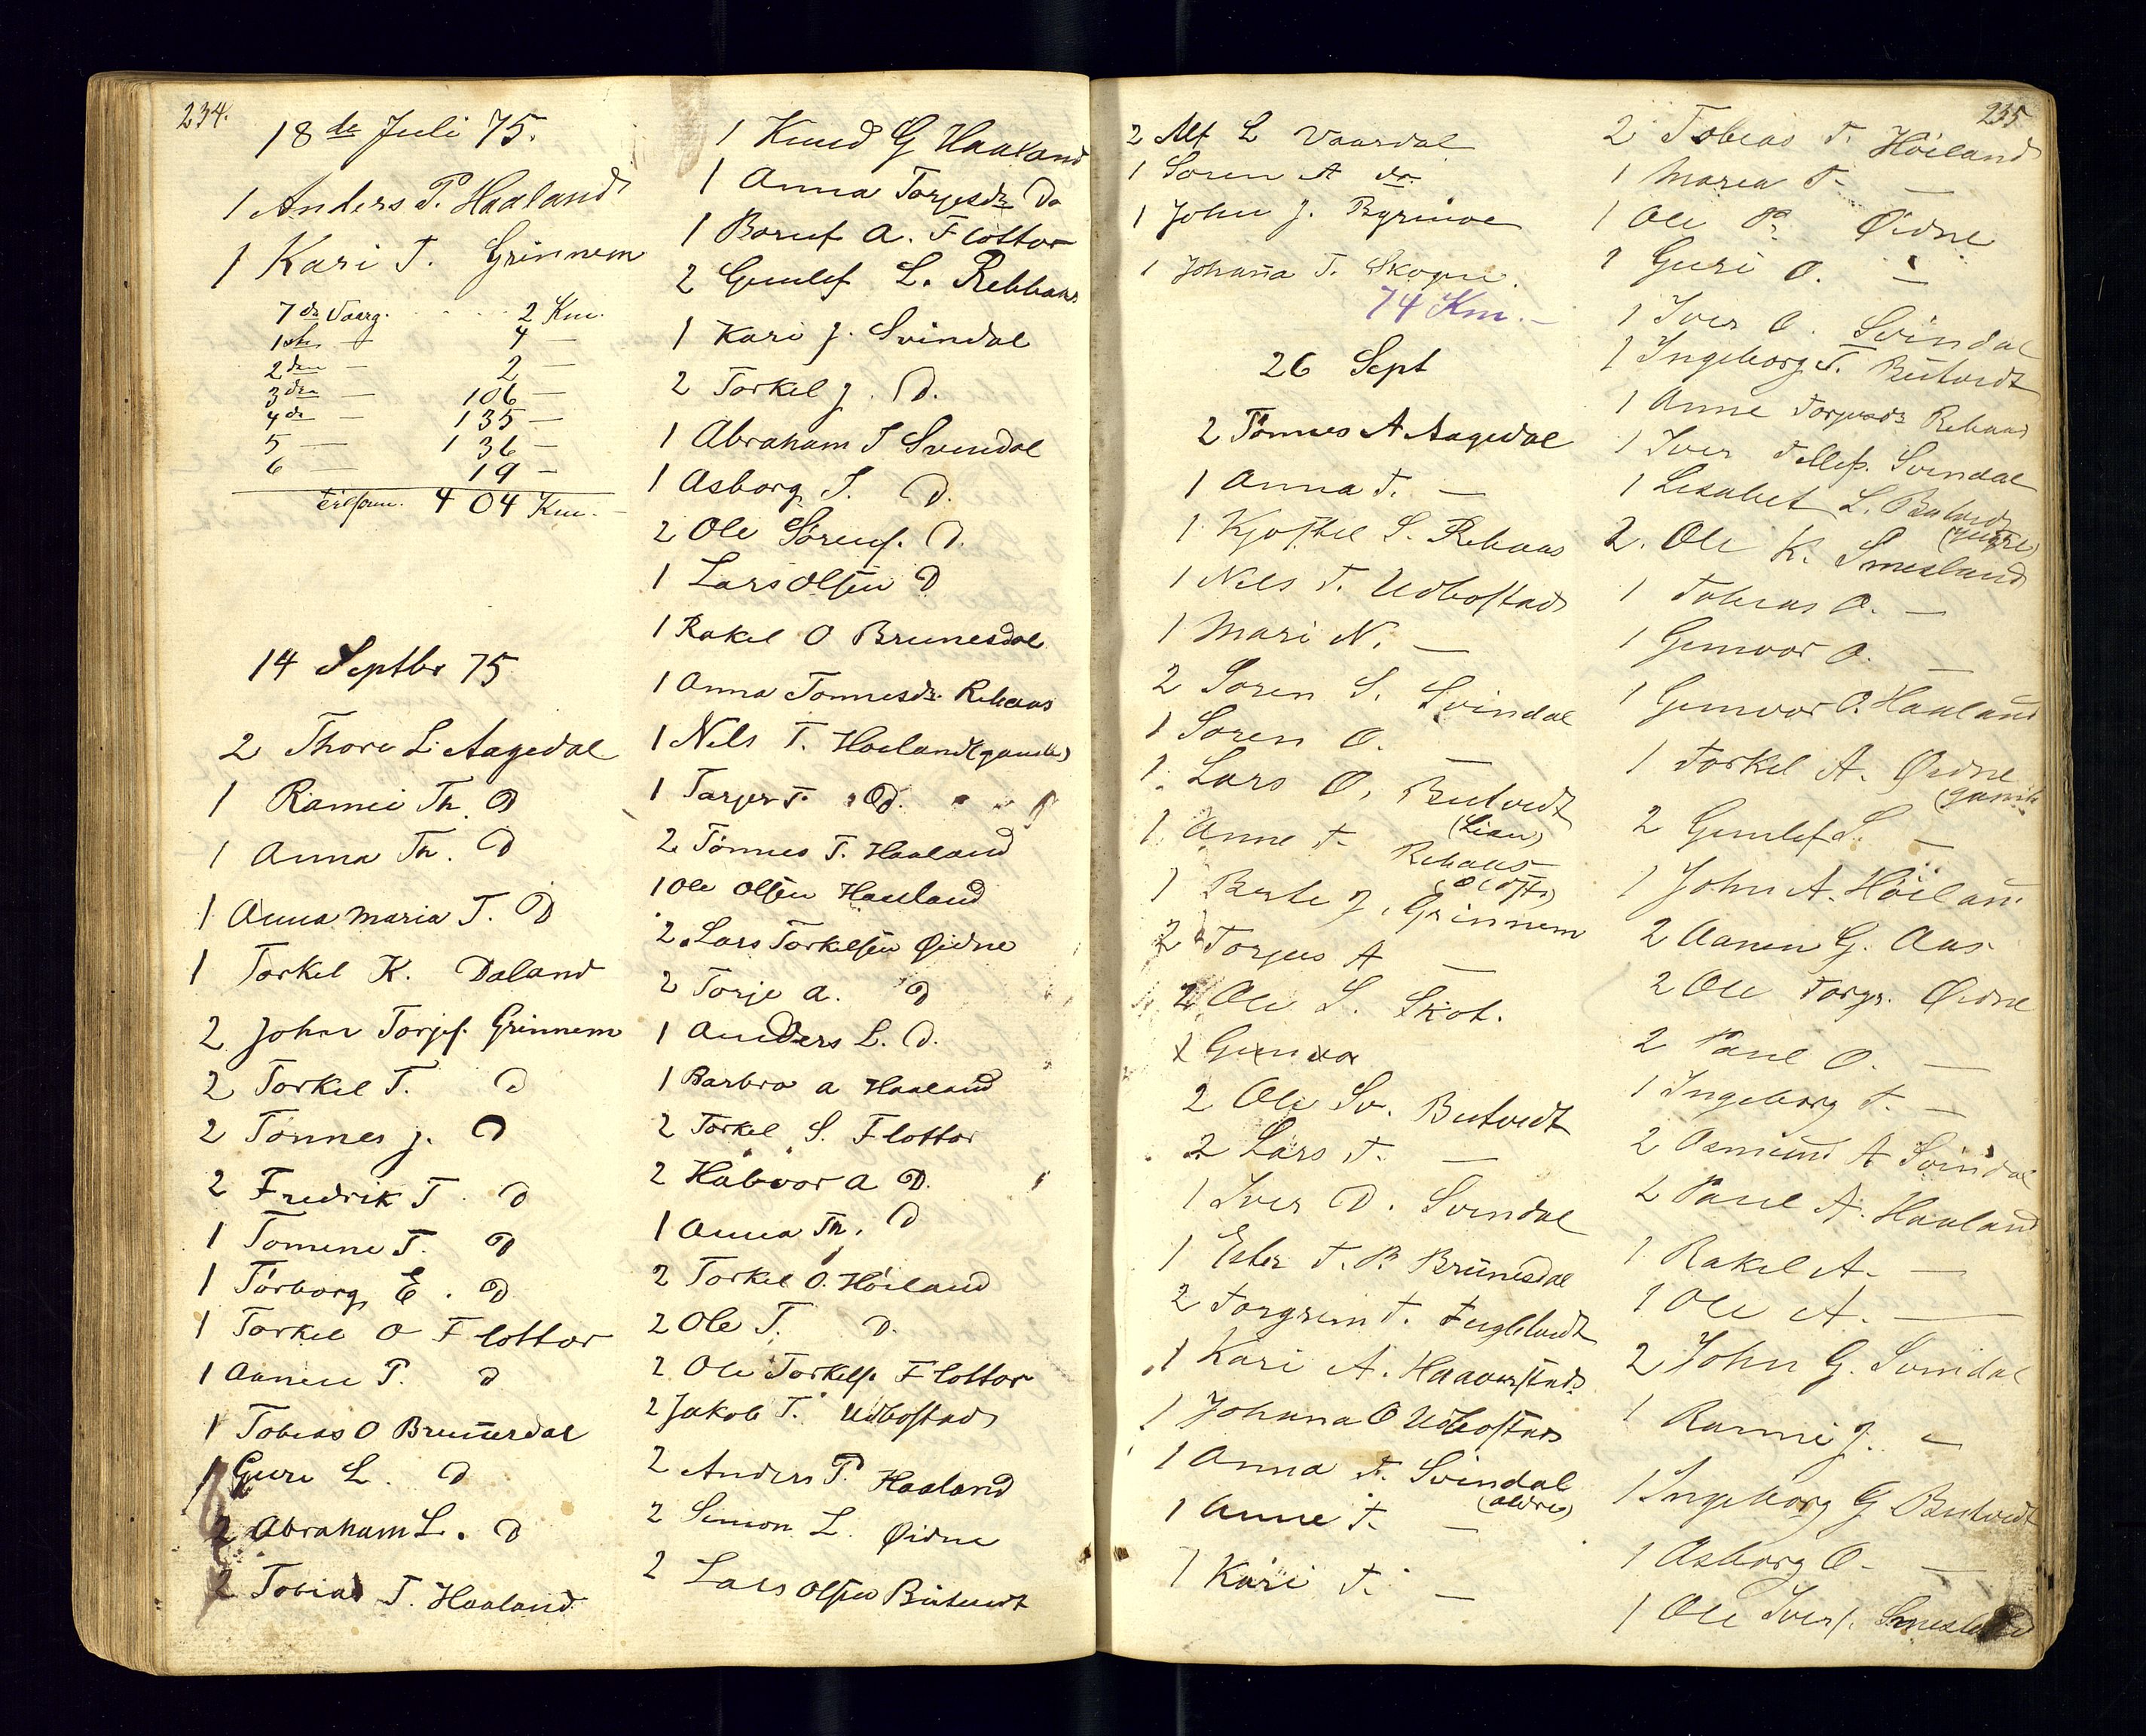 234.
18de Juli 75.
1 Anders P. Haaland
1 Kari T. Grinnem
7de Vaarg. . . . . 2 Km.
1ste — 4 —
2den — 2 —
3den — 106 —
4de — 135 —
5 — 136 —
6 — 19 —
tilsam. 404 Km. —
14 Septbr 75
2 Thore L. Aagedal
1 Ramei Th. D
1 Anna Th. D
1 Anna Maria T. D
1 Torkel K. Daland
2 John Torjes. Grinnem
2 Torkel T. D
2 Tönnes J. D
2 Fredrik T. D
1 Tomene T. D
1 Törborg E. D
1 Torkel O Flottor
1 Aanen P. D
1 Tobias O Brunesdal
1 Guri L. D
2 Abraham L. D
2 Tobias T. Haaland
1 Knud G Haaland
1 Anna Torjesdr Do
1 Borut A. Flottor
2 Gunlef L. Rebhaas
1 Kari J. Svindal
2 Torkel J. D.
1 Abraham T Svendal
1 Asborg T. D.
2 Ole Sörens. D.
1 Lars Olsen D
1 Rakel O Brunesdal
1 Anna Tonnesdr. Rehaas
1 Nils T. Hoeland (gamle)
1 Tarjer T. D.
2 Tönnes T. Haaland
1 Ole Olsen Haaland
2 Lars Torkelsen Øidne
2 Torje A. D
1 Anders L. D.
1 Barbro A Haaland
2 Torkel S. Flottor
2 Håvor A D.
1 Anna Th. D
2 Torkel O. Höiland
2 Ole T. D.
2 Ole Torkels. Flottor
2 Jakob T. Udbostad
2 Anders P. Haaland
2 Simon L. Øidne
2 Lars Olsen Butvedt
235
2 Alf L Vaardal
1 Soren A do.
1 John J. Byrmoe
1 Johana T. Skogen.
74 Km. —
26 Sept
2 Tönnes A Aagedal
1 Anna T. —
1 Kjostel S. Rehaas
1 Nils T. Udbostad
1 Mari N. —
2 Soren S. Svindal
1 Soren O. —
1 Lars O. Butvedt
(Lien)
1 Anne T. Rehaas
1 Berte J. Grinnem
2 Torjus A —
2 Ole S. Skot.
2 Ole Sv. Butvedt
2 Lars T. —
1 Iver D. Svendal
1 Ester T. P. Brunesdal
2 Torgrim T. Fuglevedt
1 Kari A. Haaverstad
1 Johanna O Udbostad
1 Anna T. Svindal
(ældre)
1 Anne T. —
1 Kari T. —
2 Tobias T. Höiland
1 Maren T. —
1 Ole P. Øidne
1 Guri O. —
1 Iver O. Svindal
1 Ingeborg T. Butvedt
1 Anne Torjusdr Rehaas
1 Iver Tellefs. Svendal
1 Lisabet L. Butvedt
(yngre)
2. Ole K. Smeland
1 Tobias O. —
1 Gunvor O. —
1 Gunvor O. Haaland
1 Torkel A. Øidne
(gamle)
2 Gunlef S. —
1 John A. Höiland
2 Aanen G. Aas
2 Ole Torgr. Øidne
2 Paul O. —
1 Ingeborg T. —
2 Asmund A Svindal
2 Paul A. Haaland
1 Rakel A. —
1 Ole A. —
2 John G. Svindal
1 Ramei J. —
1 Ingeborg G Butvedt
1 Asborg O. —
1 Ole Ivers. Smeland